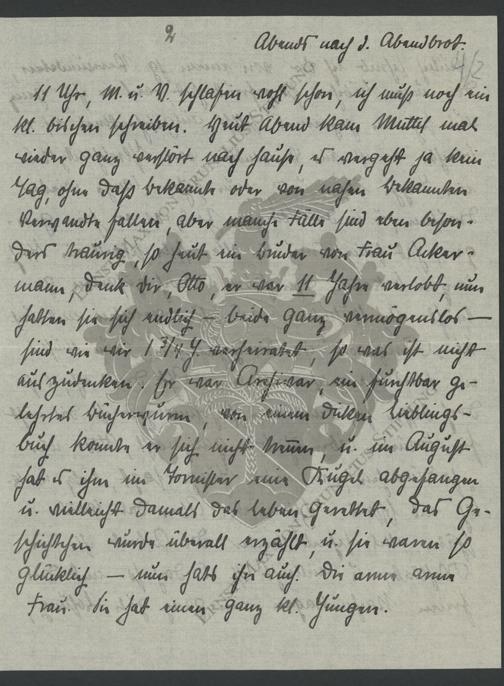 2
Abends nach d. Abendbrot.
4/2
11 Uhr, M. u. V. schlafen wohl schon, ich muß noch ein
kl. bischen schreiben. Heut Abend kam Mutti mal
wieder ganz verstört nach Hause, es vergeht ja kein
Tag, ohne daß Bekannte oder von nahen Bekannten
Verwandte fallen, aber manche Fälle sind eben beson-
ders traurig, so heut ein Bruder von Frau Acker-
mann, denk dir, Otto, er war 11 Jahre verlobt, nun
hatten sie sich endlich – beide ganz vermögenslos –
sind wie wir 1 3/4 J. verheiratet, so was ist nicht
auszudenken. Er war Archivar, ein furchtbar ge-
lehrtes Bücherwurm, von einem dicken Lieblings-
buch konnte er sich nicht trennen, u. im August
hat es ihm im Tornister eine Kugel abgefangen
u. vielleicht damals das Leben gerettet, das Ge-
schichtchen wurde überall erzählt, u. sie waren so
glücklich – nun hats ihn auch. Die arme arme
Frau. Sie hat einen ganz kl. Jungen.